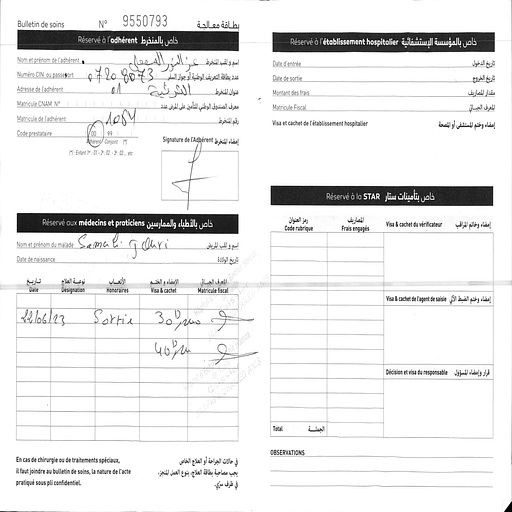 Bulletin de soins N° 9550793 بطاقة معالجة
Réservé à l'adhérent خاص بالمنخرط
Nom et prénom de l'adhérent اسم و لقب المنخرط
Numéro CIN ou passeport 07208073 عدد بطاقة التعريف الوطنية أو جواز السفر
Adresse de l'adhérent 01 الشرقية عنوان المنخرط
Matricule CNAM N° معرف الصندوق الوطني للتأمين على المرض عدد
Matricule de l'adhérent 1054 رقم المنخرط
Code prestataire 00 99
Adhérent Conjoint (*)
(*) : Enfant 1er : 01 - 2 : 02 - 3 : 03... etc
Signature de l'Adhérent إمضاء المنخرط
Réservé aux médecins et praticiens خاص بالأطباء والممارسين
Nom et prénom du malade Samali اسم و لقب المريض
Date de naissance تاريخ الولادة
تاريخ Date
نوعية العلاج Désignation
الأتعاب Honoraires
الإمضاء و الختم Visa & cachet
المعرف الجبائي Matricule fiscal
22/06/23 Sortie 30
40
En cas de chirurgie ou de traitements spéciaux,
il faut joindre au bulletin de soins, la nature de l'acte
pratiqué sous pli confidentiel.
في حالات الجراحة أو العلاج الخاص
يجب مصاحبة بطاقة العلاج، بنوع العمل المنجز،
في ظرف سري.
Réservé à l'établissement hospitalier خاص بالمؤسسة الإستشفائية
Date d'entrée تاريخ الدخول
Date de sortie تاريخ الخروج
Montant des frais مقدار المصاريف
Matricule Fiscal المعرف الجبائي
Visa et cachet de l'établissement hospitalier إمضاء وختم المستشفى أو المصحة
Réservé à la STAR خاص بتأمينات ستار
رمز العنوان Code rubrique
المصاريف Frais engagés
Visa & cachet du vérificateur إمضاء وخاتم المراقب
Visa & cachet de l'agent de saisie إمضاء وختم
Décision et visa du responsable قرار وإمضاء المسؤول
Total الجملة
OBSERVATIONS